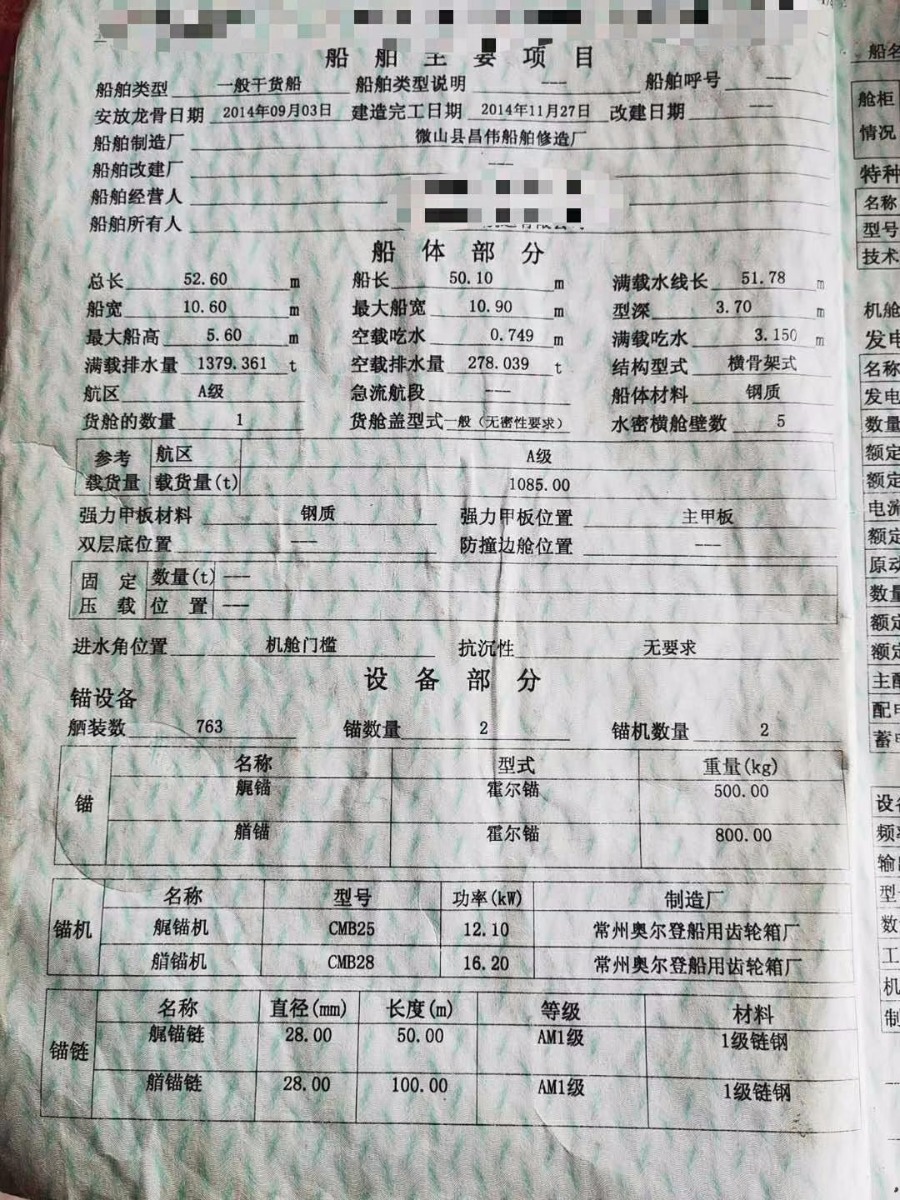 船舶主要项目
船舶类型 一般干货船 船舶类型说明 --- 船舶呼号 ---
安放龙骨日期 2014年09月03日 建造完工日期 2014年11月27日 改建日期 ---
船舶制造厂 微山县昌伟船舶修造厂
船舶改建厂 ---
船舶经营人
船舶所有人
船体部分
总长 52.60 m 船长 50.10 m 满载水线长 51.78 m
船宽 10.60 m 最大船宽 10.90 m 型深 3.70 m
最大船高 5.60 m 空载吃水 0.749 m 满载吃水 3.150 m
满载排水量 1379.361 t 空载排水量 278.039 t 结构型式 横骨架式
航区 A级 急流航段 --- 船体材料 钢质
货舱的数量 1 货舱盖型式 一般（无密性要求） 水密横舱壁数 5
参考载货量 航区 A级
载货量(t) 1085.00
强力甲板材料 钢质 强力甲板位置 主甲板
双层底位置 --- 防撞边舱位置 ---
固定压载 数量(t) ---
位置 ---
进水角位置 机舱门槛 抗沉性 无要求
设备部分
锚设备
舾装数 763 锚数量 2 锚机数量 2
锚 名称 型式 重量(kg)
艉锚 霍尔锚 500.00
艏锚 霍尔锚 800.00
锚机 名称 型号 功率(kW) 制造厂
艉锚机 CMB25 12.10 常州奥尔登船用齿轮箱厂
艏锚机 CMB28 16.20 常州奥尔登船用齿轮箱厂
锚链 名称 直径(mm) 长度(m) 等级 材料
艉锚链 28.00 50.00 AM1级 1级链钢
艏锚链 28.00 100.00 AM1级 1级链钢
船名
舱柜
情况
特种
名称
型号
技术
机舱
发电
名称
发电
数量
额定
额定
电流
额定
原动
数量
额定
额定
主配
配电
蓄电
设备
频率
输出
型号
数
工
机
制